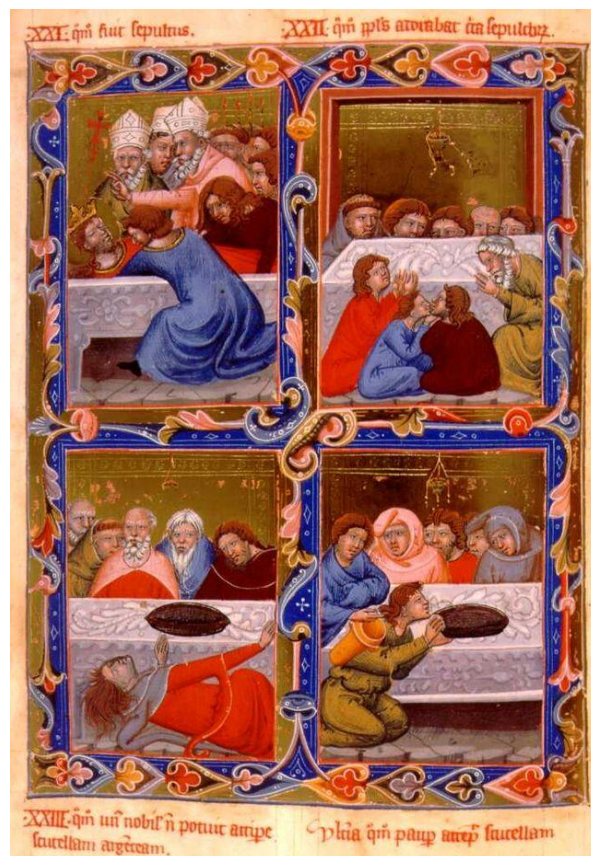 ·XXI· qm̄ fuit sepultus.
·XXII· qm̄ ppl̄s adorabat sc̄a sepulchrū.
·XXIII· qm̄ vir nobil' n̄ potuit accip̄e
scutellam argēteam.
Vltīa qm̄ paup accep̄ scutellam